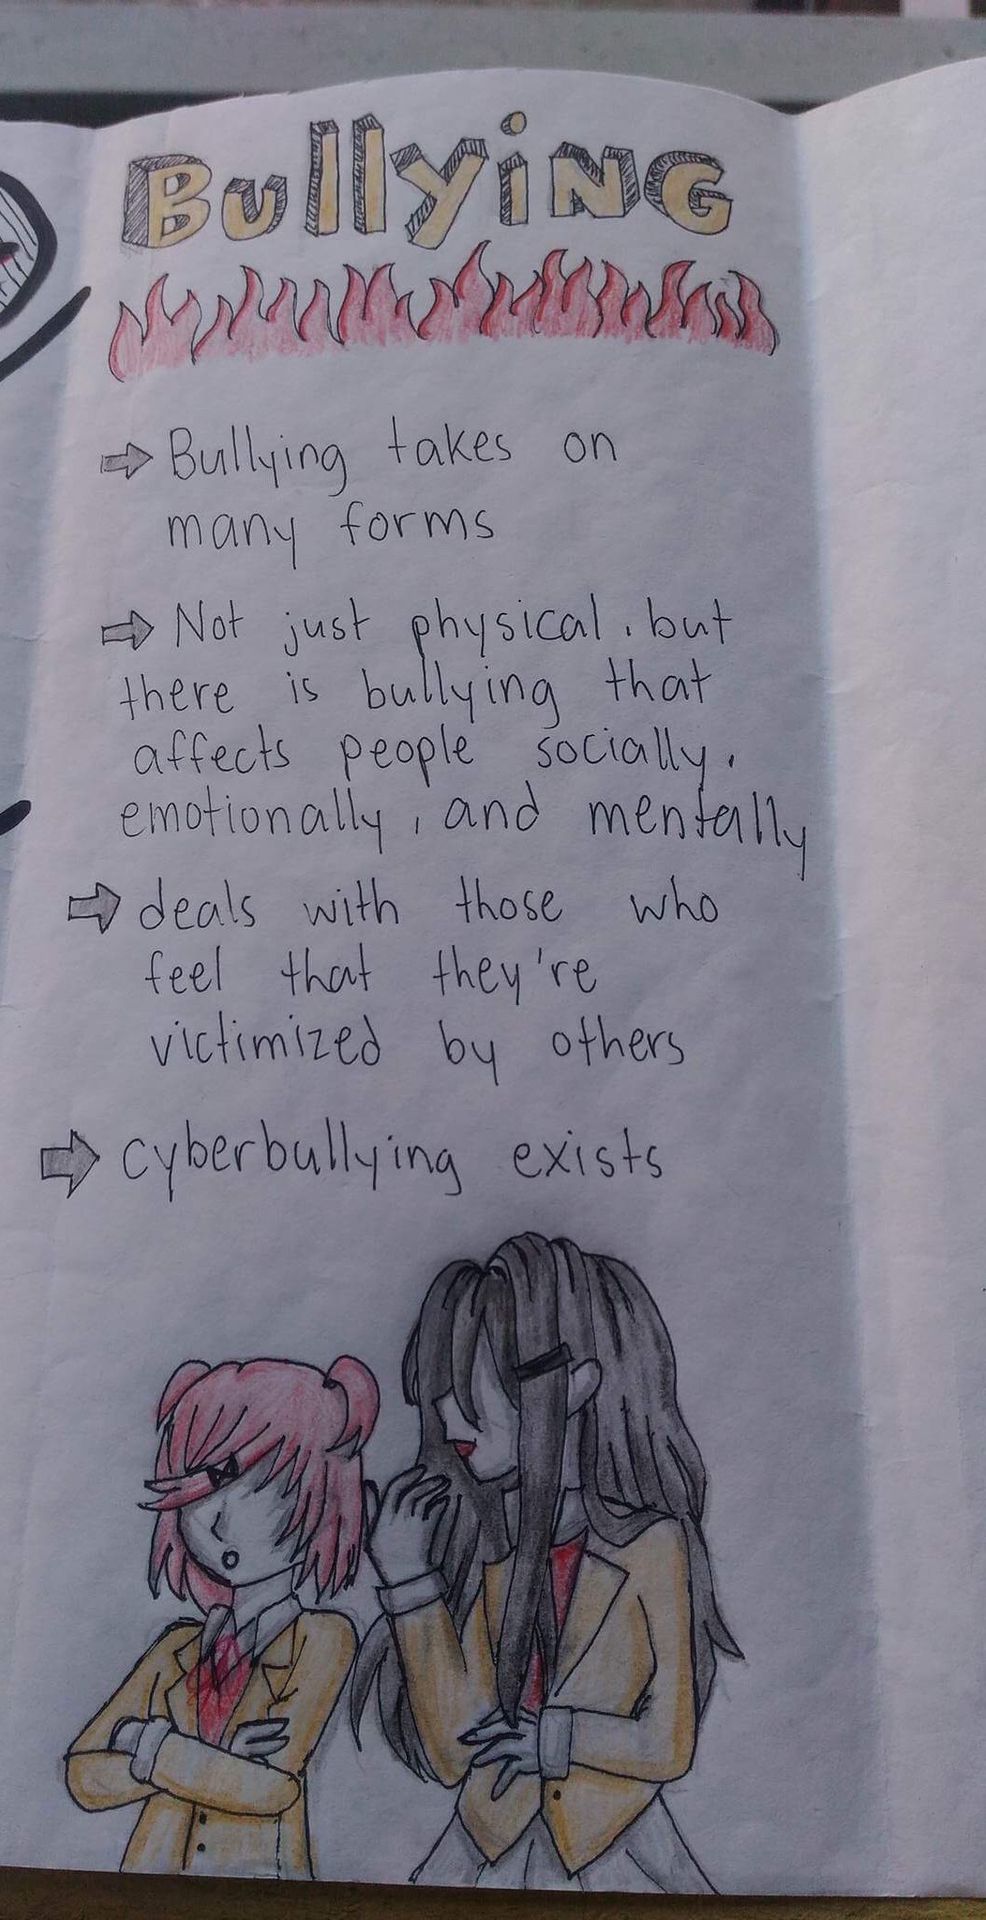 BullyiNG
⇨ Bullying takes on
many forms
⇨ Not just physical, but
there is bullying that
affects people socially,
emotionally, and mentally
⇨ deals with those who
feel that they're
victimized by others
⇨ cyberbullying exists